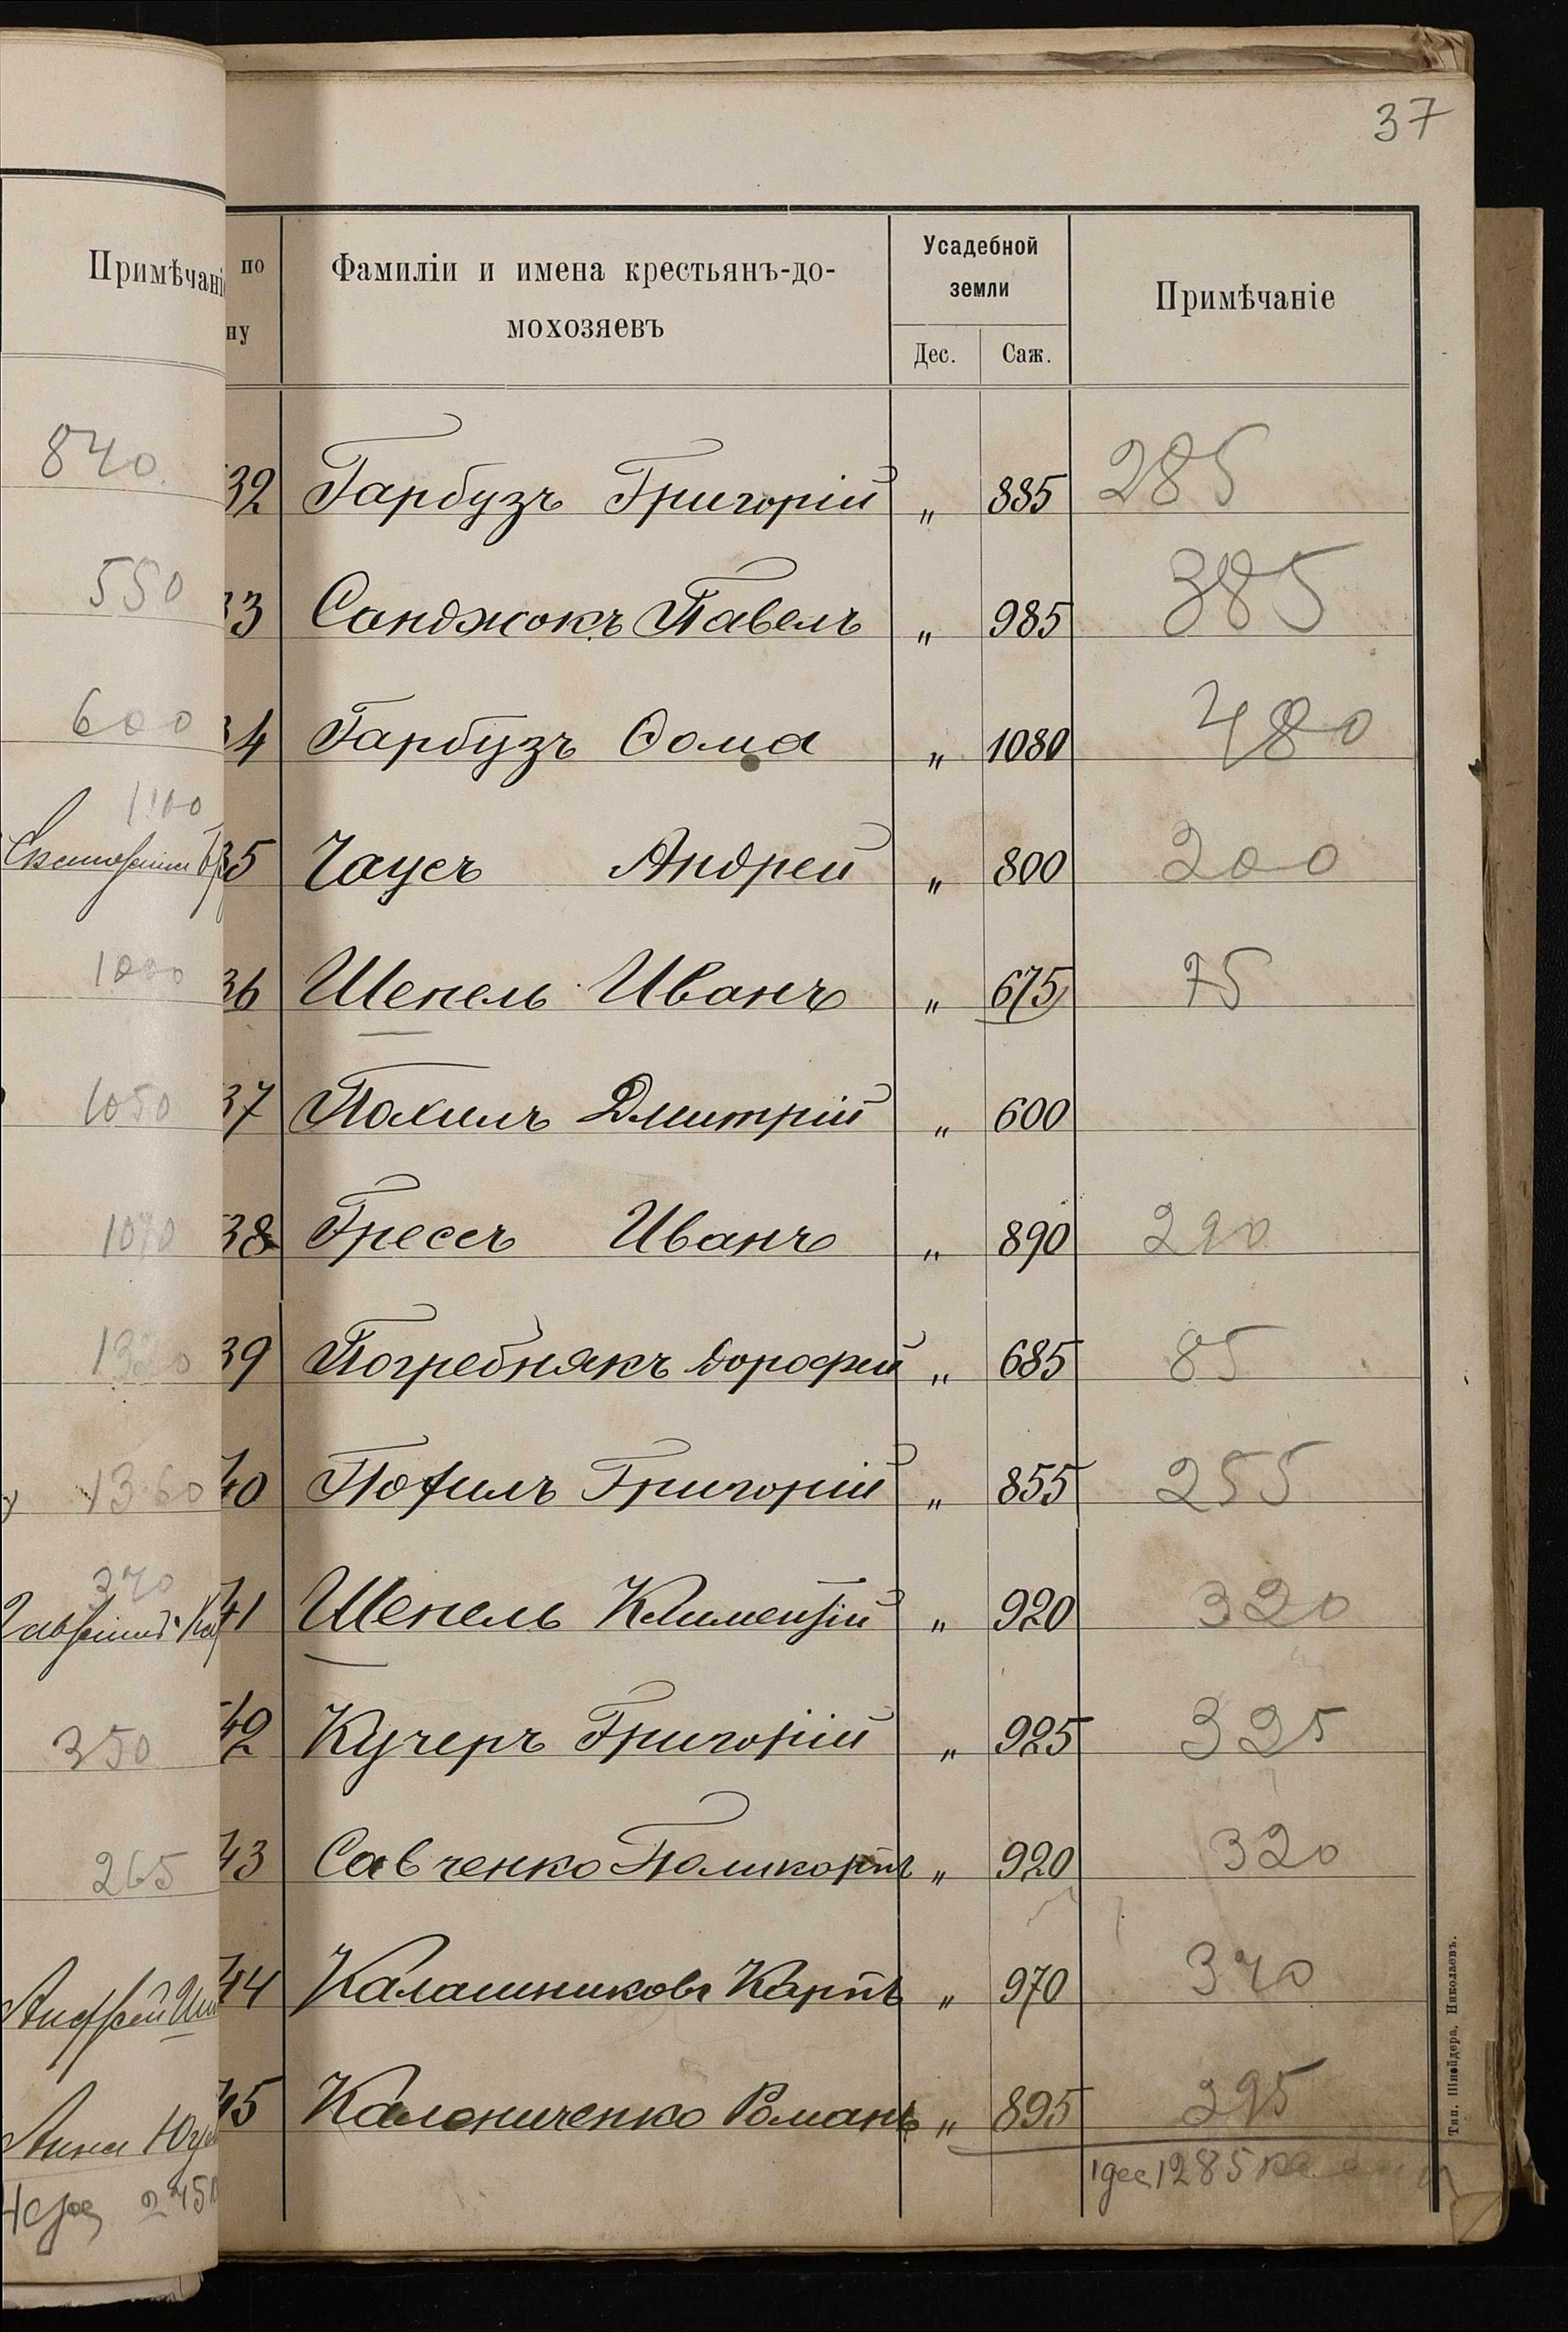 37
Примѣчані
840
550
600
1100
1000
1050
1070
1360
370
350
265
Анна
по
ну
Фамиліи и имена крестьянъ-до-
мохозяевъ
Усадебной
земли
Дес. Саж.
Примѣчаніе
32 Гарбузъ Григорій „ 885 285
33 Санджокъ Павелъ „ 985 385
34 Гарбузъ Ѳома „ 1080 480
35 Чаусъ Андрей „ 800 200
36 Шепель Иванъ „ 675 75
37 Похилъ Дмитрій „ 600
38 Грессъ Иванъ „ 890 290
39 Погребнякъ Дорофей „ 685 85
40 Похилъ Григорій „ 855 255
41 Шепель Климентій „ 920 320
42 Кучеръ Григорій „ 925 325
43 Савченко Поликарпъ „ 920 320
44 Калашниковъ Карпъ „ 970 370
45 Калениченко Романъ „ 895 295
1 дес 1285
Тип. Шнейдера, Николаевъ.